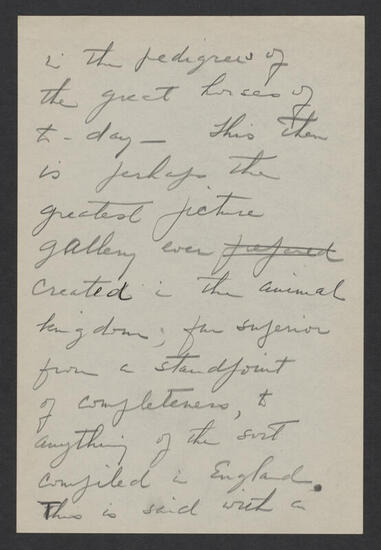 in the pedigrees of
the great horses of
to-day — This then
is perhaps the
greatest picture
gallery ever prepared
created in the animal
kingdom; far superior
from a standpoint
of completeness, to
anything of the sort
compiled in England.
This is said with a